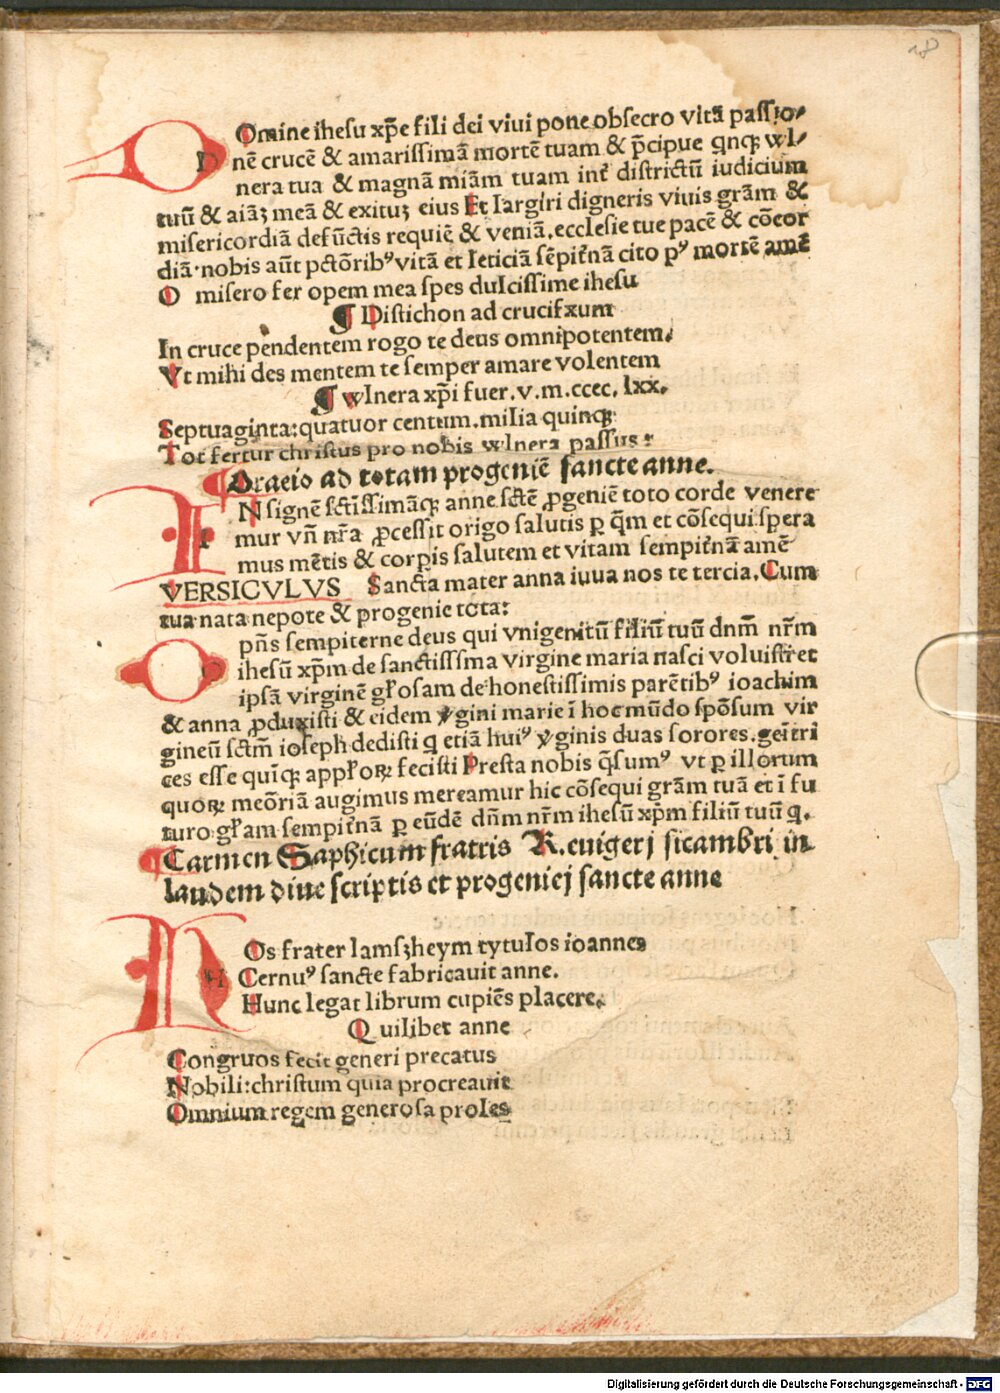 18
DOmine ihesu xp̄e fili dei viui pone obsecro vitā passio⸗
nē crucē & amarissimā mortē tuam & p̄cipue qnqꝫ wl⸗
nera tua & magnā miām tuam int̄ districtū iudicium
tuū & aiāꝫ meā & exituꝫ eius Et largiri digneris viuis grām &
misericordiā defūctis requiē & veniā.ecclesie tue pacē & cōcor
diā·nobis aūt pctōribꝰ vitā et leticiā sēpit̄nā cito pꝰ mortē amē
O misero fer opem mea spes dulcissime ihesu
¶ Distichon ad crucifxum
In cruce pendentem rogo te deus omnipotentem.
Vt mihi des mentem te semper amare volentem
¶ wlnera xp̄i fuer.v.m.cccc.lxx.
Septuaginta:quatuor centum.milia quinqꝫ
Tot fertur christus pro nobis wlnera passus:
¶ Oracio ad totam progeniē sancte anne.
INsignē sctissimāqꝫ anne sctē ꝓgeniē toto corde venere
mur vn̄ nr̄a ꝓcessit origo salutis ꝑ q̄m et cōsequi spera
mus mētis & corpis salutem et vitam sempit̄nā amē
VERSICVLVS Sancta mater anna iuua nos te tercia.Cum
tua nata nepote & progenie tota:
Opn̄s sempiterne deus qui vnigenitū filiū tuū dnm̄ nr̄m
ihesū xp̄m de sanctisssma virgine maria nasci voluisti et
ipsā virginē gl̄osam de honestissimis parētibꝰ ioachim
& anna ꝓduxisti & eidem v̄gini marie ī hoc mūdo spōsum vir
gineū sctm̄ ioseph dedisti q etiā huiꝰ v̄ginis duas sorores.geītri
ces esse quīqꝫ appl̄oꝝ fecisti Presta nobis q̄sumꝰ vt ꝑ illorum
quoꝝ meōriā augimus mereamur hic cōsequi grām tuā et ī fu
turo gl̄am sempit̄nā ꝑ eūdē dn̄m nr̄m ihesū xp̄m filiū tuū q.
¶ Carmen Saphicum fratris R.euigerj sicambri in
laudem diue scriptis et progeniej sancte anne
HOs frater lamsꝫheym tytulos ioannes
Cernuꝰ sancte fabricauit anne.
Hunc legat librum cupiēs placere.
Quilibet anne
Congruos fecit generi precatus
Nobili:christum quia procreauit
Omnium regem generosa proles
Digitalisierung gefördert durch die Deutsche Forschungsgemeinschaft - DFG